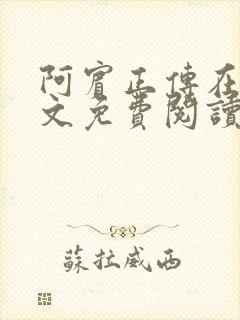 阿賓正傳在
文免費閱讀
蘇拉威西